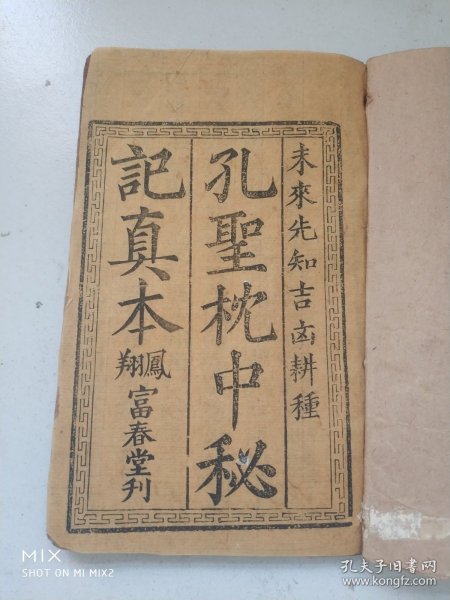 未來先知吉凶耕種
孔聖枕中秘
記真本
鳳翔
富春堂刊
MIX
SHOT ON MI MIX2
孔夫子旧书网
www.kongfz.com